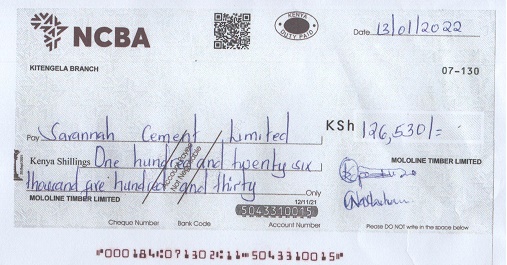 NCBA
KENYA
DUTY PAID
Date 13/01/2022
KITENGELA BRANCH
07-130
Pay Savannah Cement Limited
KSh 126,530/=
Kenya Shillings One hundred and twenty six
thousand five hundred and thirty Only
MOLOLINE TIMBER LIMITED
MOLOLINE TIMBER LIMITED
12/11/21
5043310015
Cheque Number Bank Code Account Number
Please DO NOT write in the space below
"000184:071302C:11"5043310015"